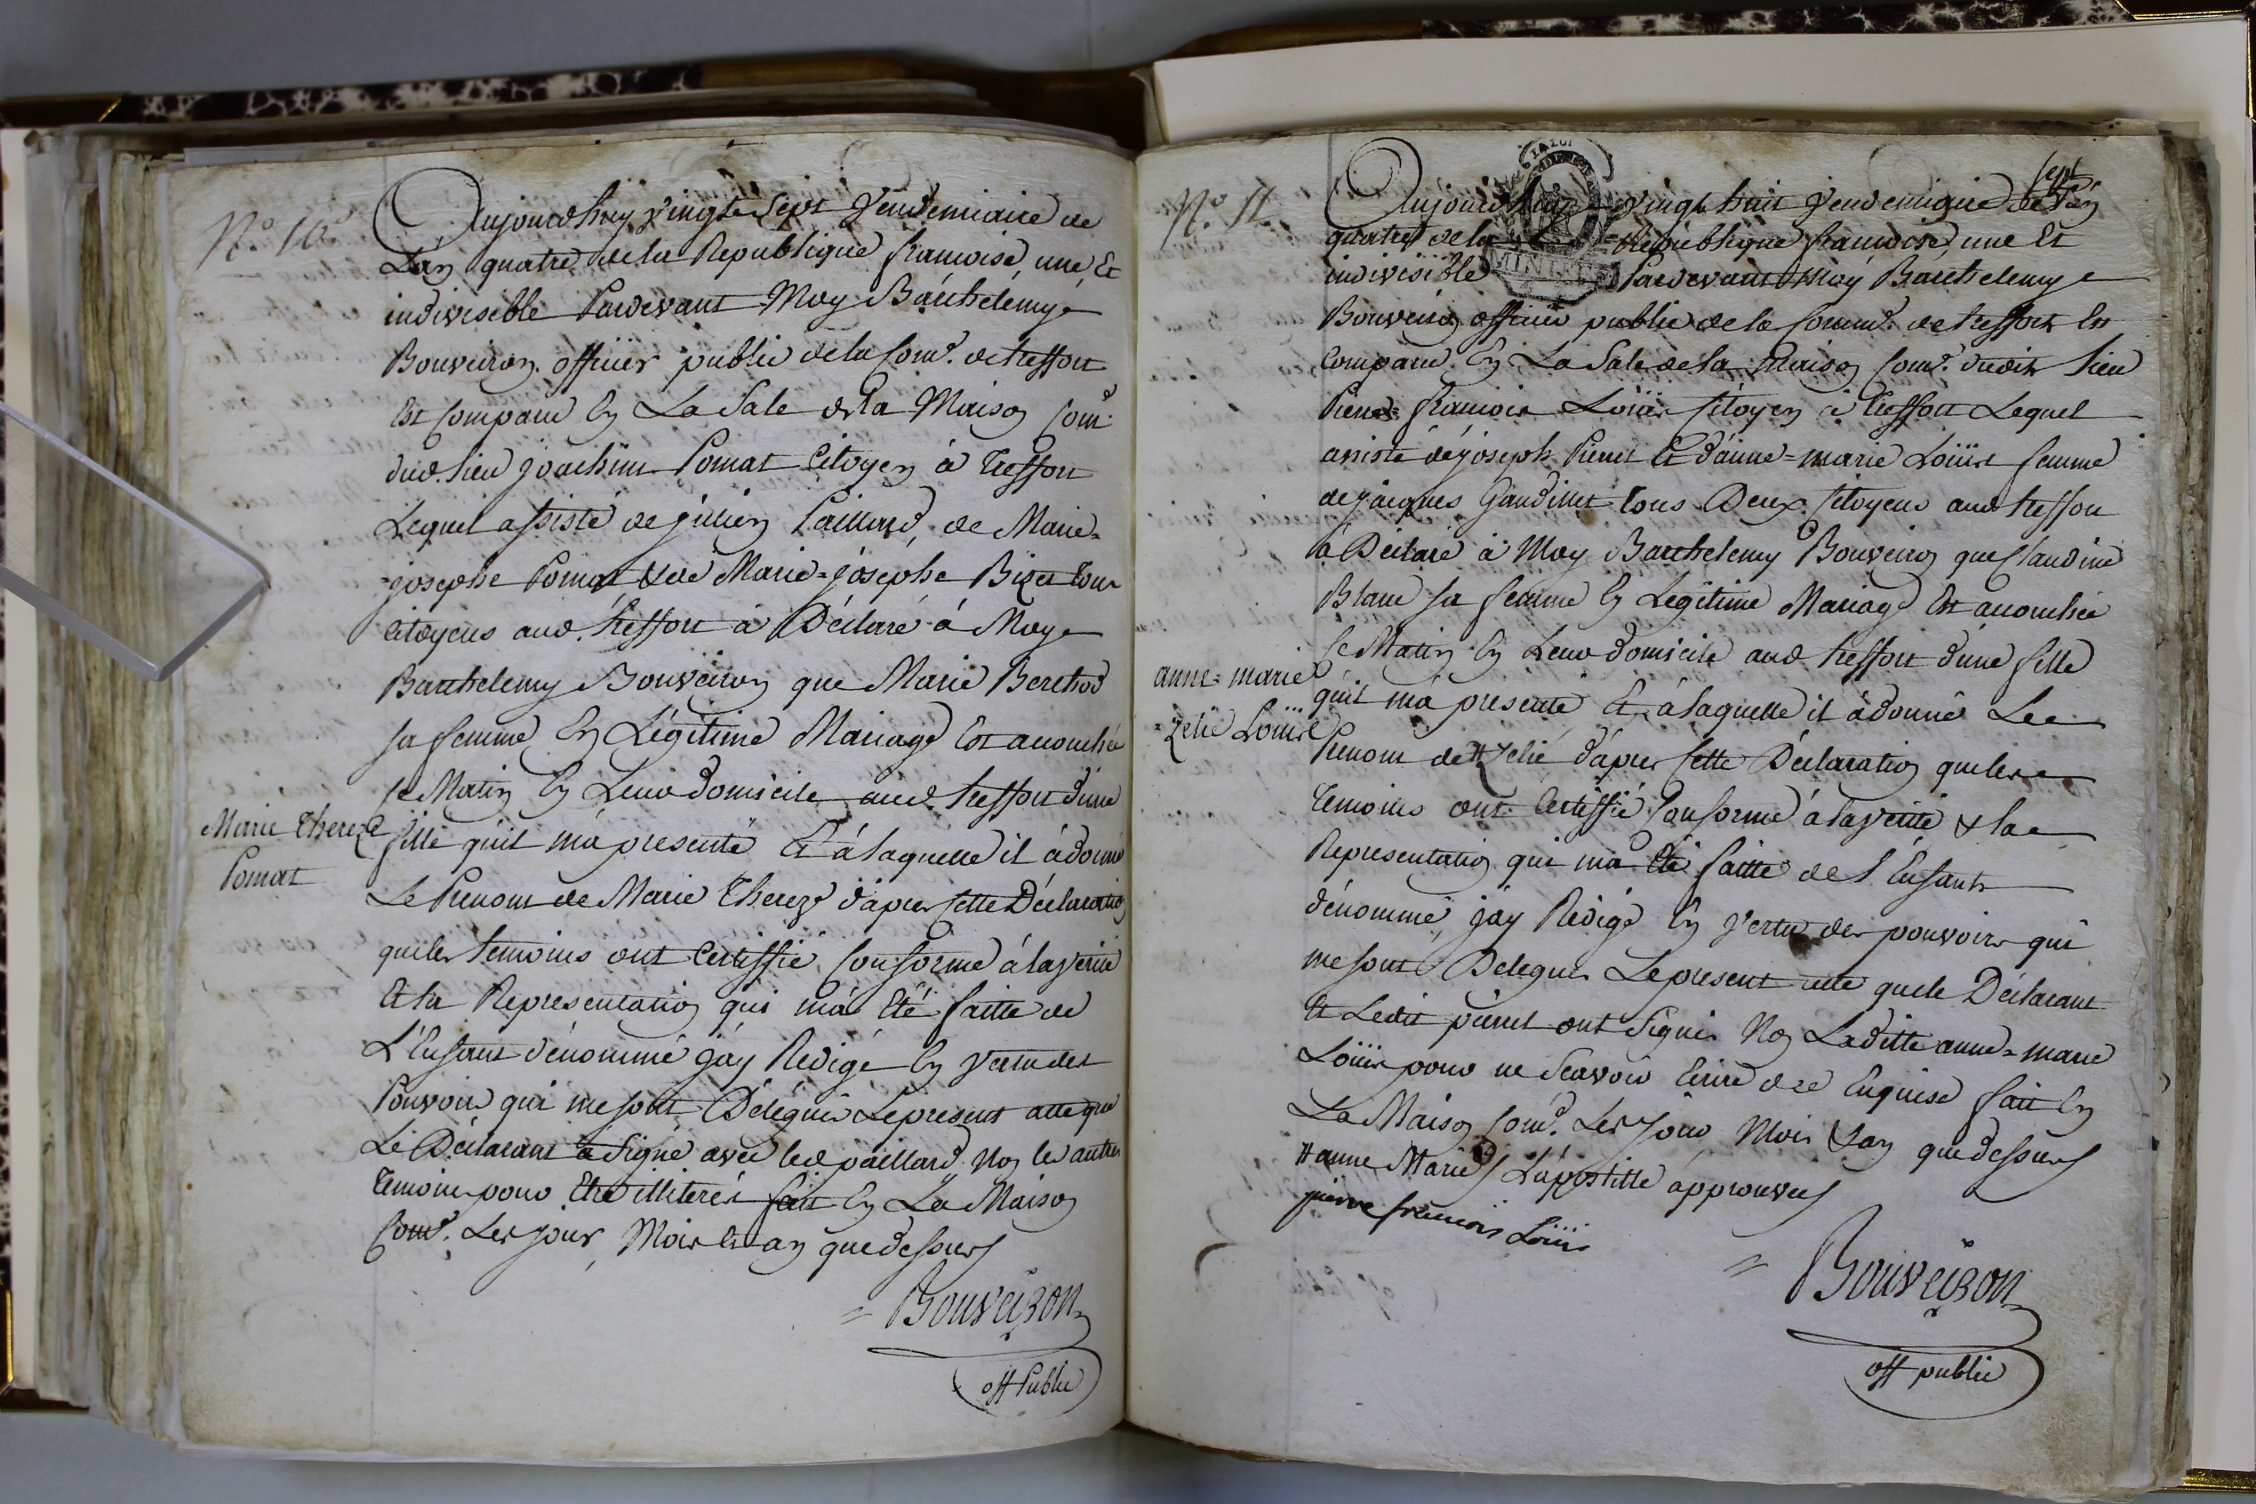 N.º 10.
Aujourdhuy vingt Sept Vendemiaire de
L'an quatre de la Republique francoise une Et
indivisible Pardevant Moy Barthelemy
Bouveiron officier public de la Com.e de treffort
Est Comparu En La Sale de la Maison Com.e
dud. Lieu joachim Pomat Citoyen à Treffort
Lequel assisté de julien Paillard, de Marie=
=josephe Pomat & de Marie=josephe Bizet tous
Citoyens aud. treffort à Déclaré à Moy
Barthelemy Bouveiron que Marie Berthod
sa femme En Légitime Mariage Est accouchée
ce Matin En Leur domicile aud. treffort d'une
Marie Thereze
Pomat
fille qu'il m'a presenté Et à laquelle il à donné
Le Prenom de Marie Thereze d'apres Cette Déclaration
que les temoins ont Certiffié Conforme à la verité
Et la Representation qui m'a Eté faitte de
L'Enfant dénommé j'ay Redigé En vertu des
Pouvoirs qui me sont Délégués Le present acte que
Le Déclarant à Signé avec led. paillard Non les autres
temoins pour Etre illiterés fait En La Maison
Com.e Les jour, Mois Et an que dessus
Bouveiron
off Public
N.º 11.
LA LOI
Sept
Aujourdhuy vingt huit Vendemiaire de L'an
quatre de la Republique francoise, une Et
indivisible Pardevant Moy Barthelemy
Bouveiron officier public de la Comm.e de treffort Est
Comparu En La Sale de la Maison Com.e dudit Lieu
Pierre= francois Loüis Citoyen à Treffort Lequel
assisté de joseph Pieret Et d'anne=marie Loüis femme
de jacques Gaudillet tous Deux Citoyens aud treffort
à Déclaré à Moy Barthelemy Bouveiron que Claudine
Blanc sa femme En Légitime Mariage Est accouchée
ce Matin En Leur domicile aud. treffort d'une fille
anne=marie
=zelie Loüis
qu'il m'a presenté Et à laquelle il à donné Le
Prenom de # Zelie d'apres Cette Déclaration que les
temoins ont Certiffié Conforme à la verité & la
Representation qui m'a Eté faitte de l'Enfant
dénommé, j'ay Redigé En vertu des pouvoirs qui
me sont Delegués Le present acte que le Déclarant
Et Ledit pieret ont Signés Non Laditte anne=marie
Loüis pour ne Scavoir Ecrire de ce Enquise fait En
La Maison Com.e Les jour Mois & an que dessus
# anne Marie L'apostille approuvée
pierre francois Loüis
Bouveiron
off public